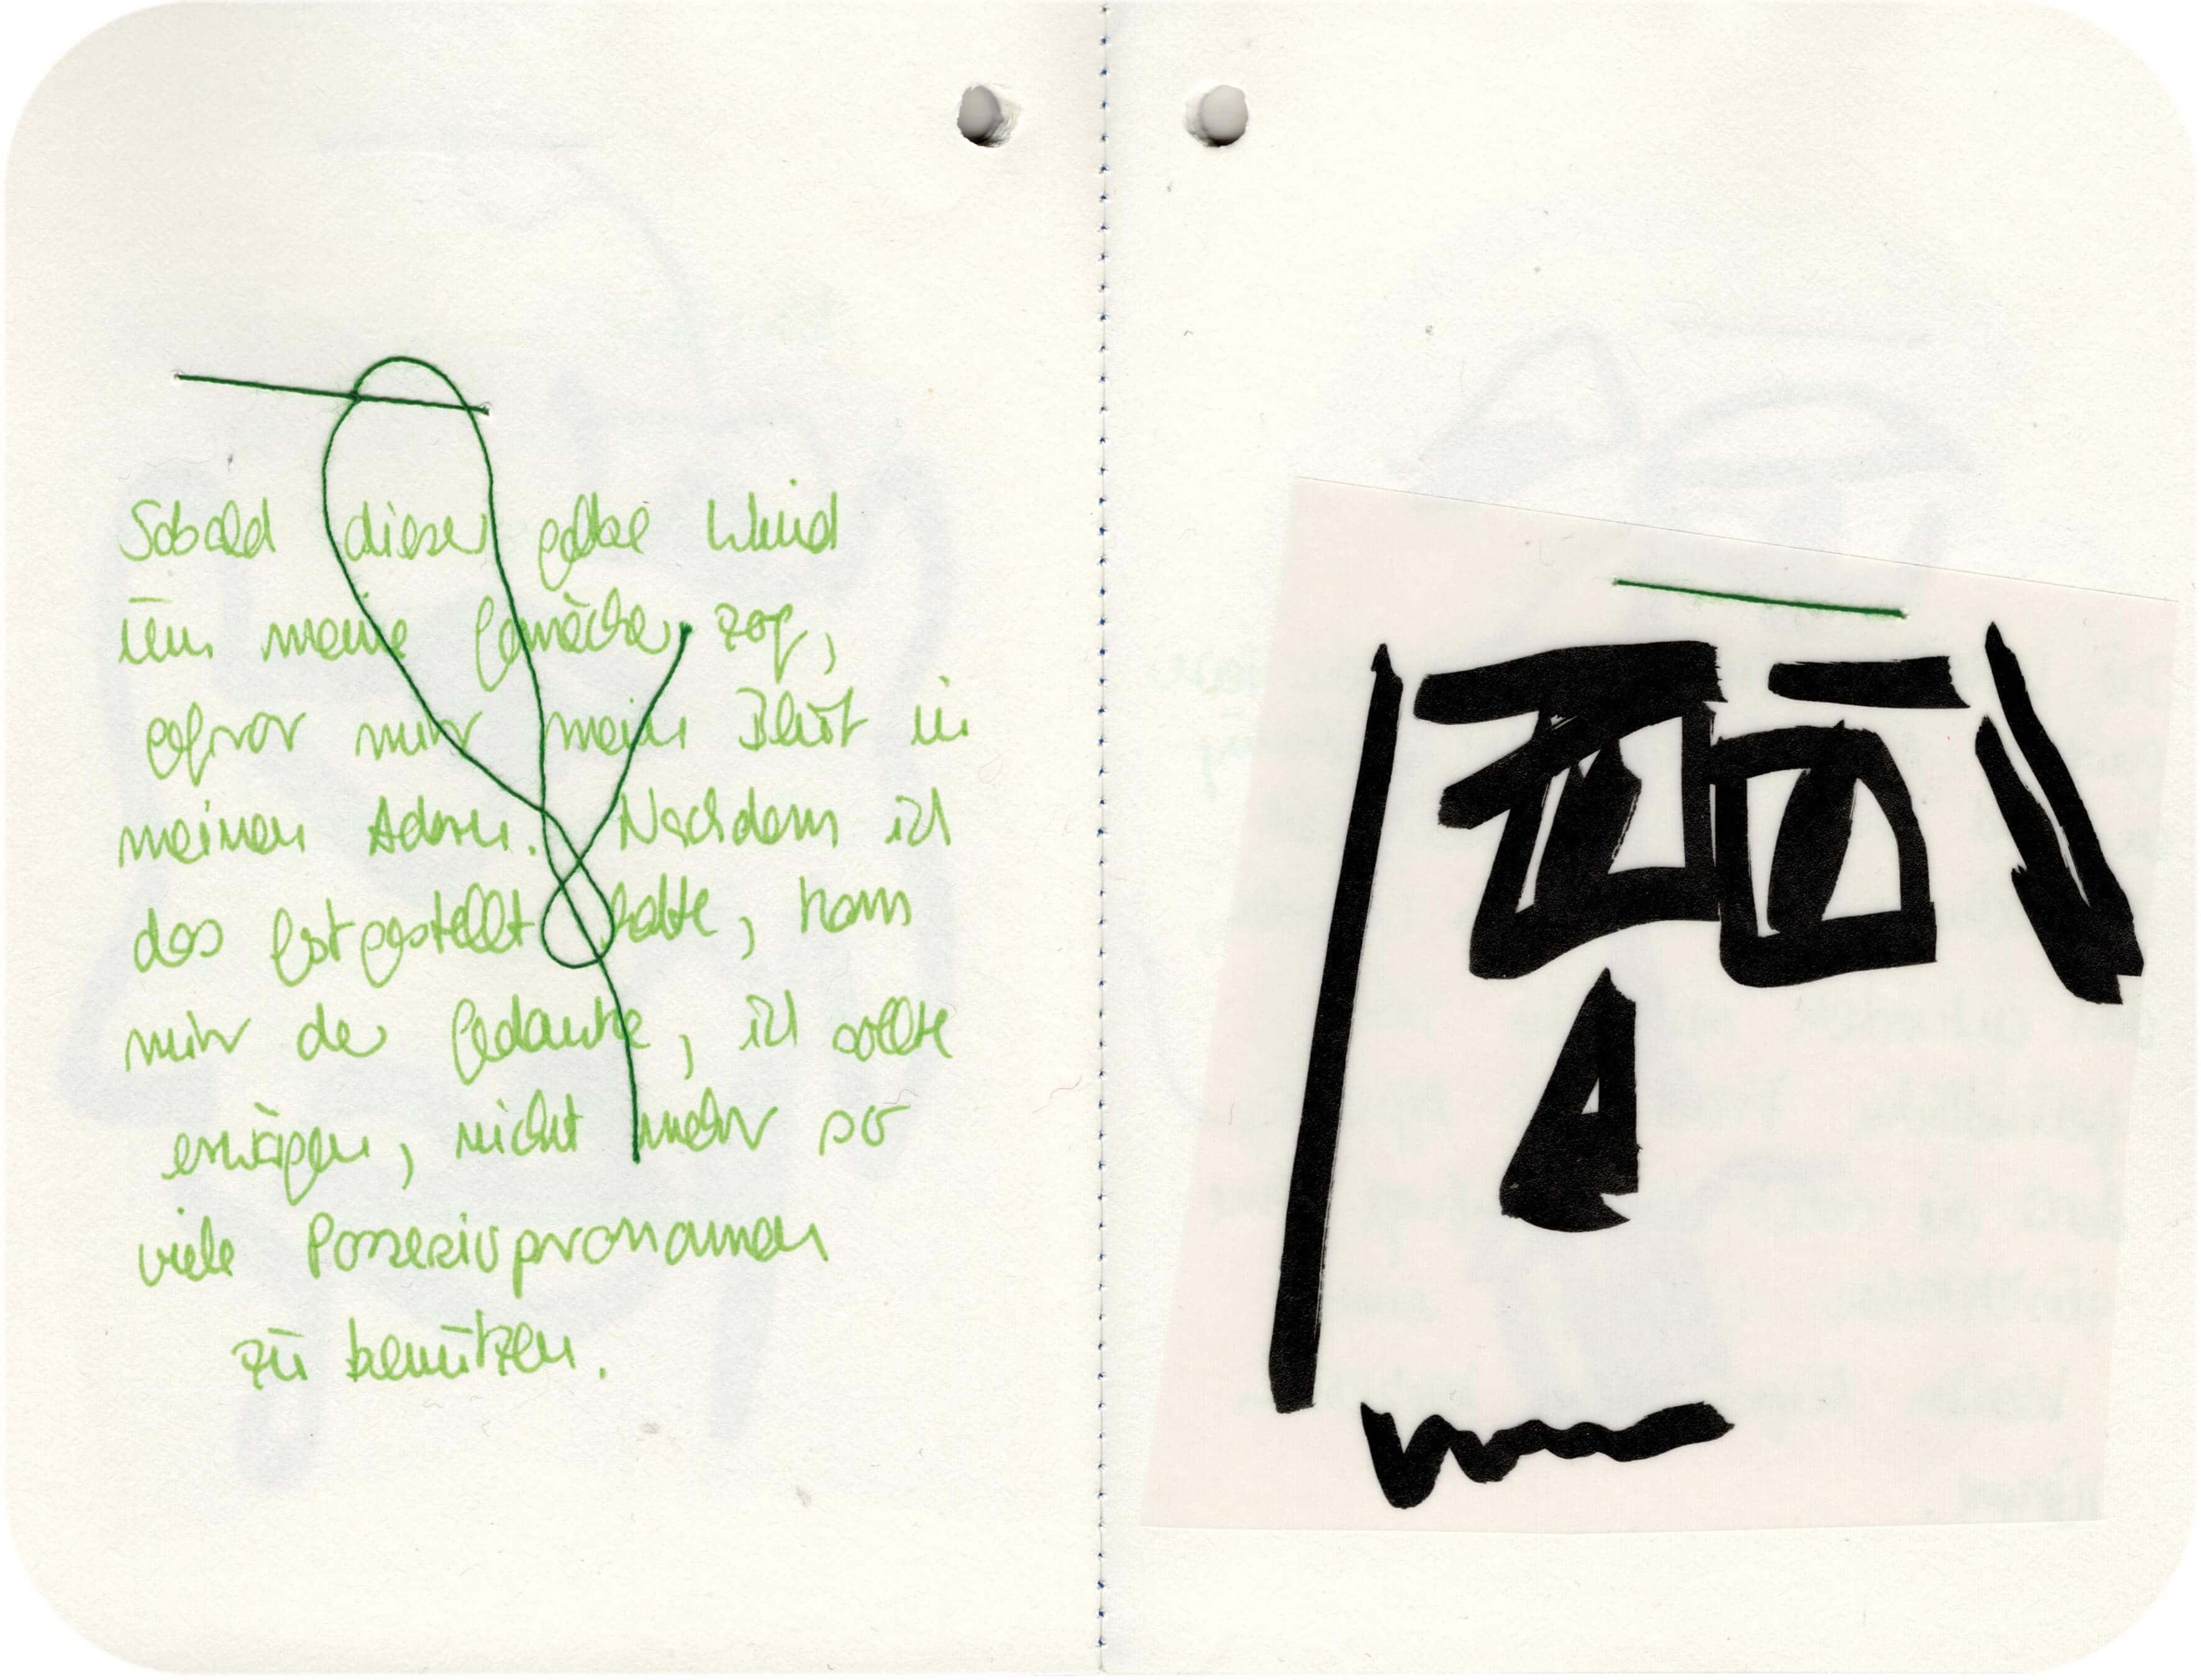 Sobald dieser gelbe Wind
um meine Gemächer zog,
gefror mir mein Blut in
meinen Adern. Nachdem ich
das festgestellt hatte, kam
mir der Gedanke, ich sollte
erwägen, nicht mehr so
viele Possesivpronomen
zu benutzen.